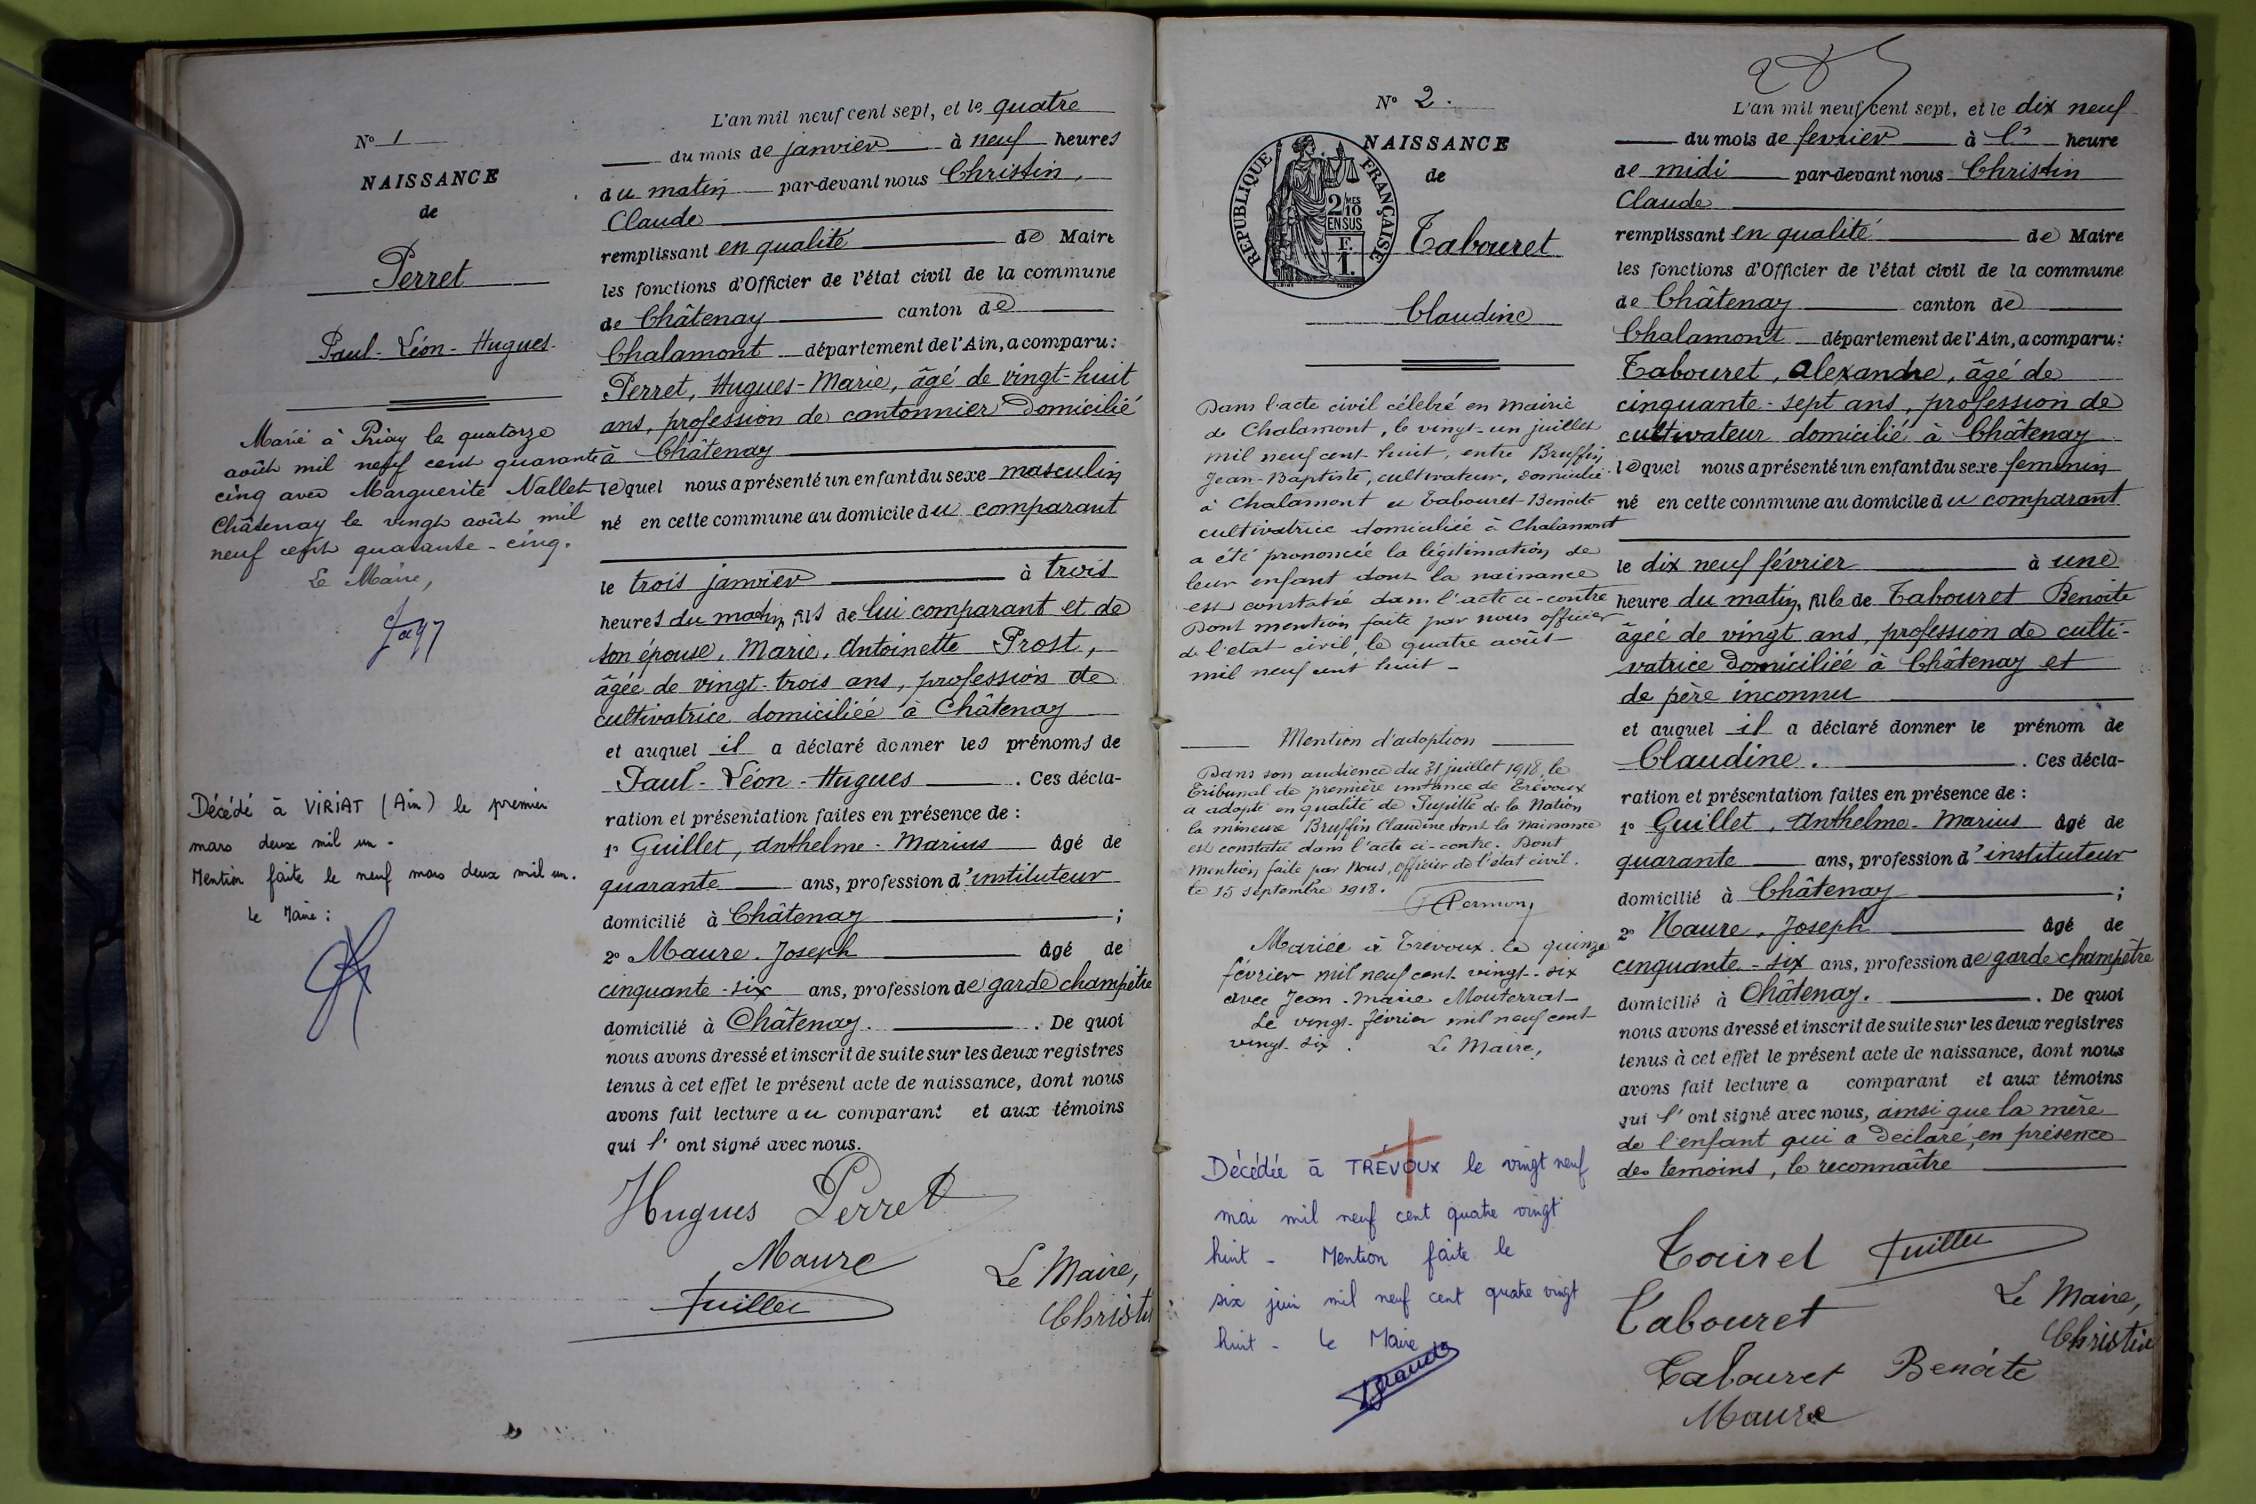 N° 1
NAISSANCE
de
Perret
Paul-Léon-Hugues.
Marié à Priay le quatorze
août mil neuf cent quarante
cinq avec Marguerite Nallet
Châtenay le vingt août mil
neuf cent quarante-cinq.
Le Maire,
Décédé à VIRIAT (Ain) le premier
mars deux mil un.
Mention faite le neuf mars deux mil un.
Le Maire :
L'an mil neuf cent sept, et le quatre
du mois de janvier à neuf heures
du matin par-devant nous Christin,
Claude
remplissant en qualité de Maire
les fonctions d'Officier de l'état civil de la commune
de Châtenay canton de
Chalamont département de l'Ain, a comparu :
Perret, Hugues-Marie, âgé de vingt-huit
ans, profession de cantonnier domicilié
à Châtenay
lequel nous a présenté un enfant du sexe masculin
né en cette commune au domicile du comparant
le trois janvier à trois
heures du matin, fils de lui comparant et de
son épouse, Marie, Antoinette Prost,
âgée de vingt-trois ans, profession de
cultivatrice domiciliée à Châtenay
et auquel il a déclaré donner les prénoms de
Paul-Léon-Hugues. Ces décla-
ration et présentation faites en présence de :
1° Guillet, Anthelme-Marius âgé de
quarante ans, profession d'instituteur
domicilié à Châtenay ;
2° Maure. Joseph âgé de
cinquante-six ans, profession de garde champêtre
domicilié à Châtenay. . De quoi
nous avons dressé et inscrit de suite sur les deux registres
tenus à cet effet le présent acte de naissance, dont nous
avons fait lecture au comparant et aux témoins
qui l'ont signé avec nous.
Hugues Perret
Maure
Le Maire,
Guillet
Christin
N° 2.
NAISSANCE
de
REPUBLIQUE FRANÇAISE
2/10
MES
EN SUS
F.
1.
Tabouret
Claudine
Dans l'acte civil célébré en mairie
de Chalamont, le vingt-un juillet
mil neuf cent huit, entre Bruffin
Jean-Baptiste, cultivateur, domicilié
à Chalamont et Tabouret-Benoite
cultivatrice domiciliée à Chalamont
a été prononcée la légitimation de
leur enfant dont la naissance
est constatée dans l'acte ci-contre
Dont mention faite par nous officier
de l'état civil, le quatre août
mil neuf cent huit -
Mention d'adoption
Dans son audience du 31 juillet 1918, le
Tribunal de première instance de Trévoux
a adopté en qualité de Pupille de la Nation
la mineure Bruffin Claudine dont la naissance
est constatée dans l'acte ci-contre. Dont
mention faite par Nous, Officier de l'état civil.
le 15 septembre 1918.
Mariée à Trévoux le quinze
février mil neuf cent vingt-six
avec Jean-Marie Monterrat
Le vingt-février mil neuf cent
vingt-six. Le Maire,
Décédée à TRÉVOUX le vingt neuf
mai mil neuf cent quatre vingt
huit - Mention faite le
six juin mil neuf cent quatre vingt
huit - Le Maire
L'an mil neuf cent sept, et le dix neuf
du mois de fevrier à l'3 heure
de midi par-devant nous Christin
Claude
remplissant en qualité de Maire
les fonctions d'Officier de l'état civil de la commune
de Châtenay canton de
Chalamont département de l'Ain, a comparu :
Tabouret, Alexandre, âgé de
cinquante-sept ans, profession de
cultivateur domicilié à Châtenay
lequel nous a présenté un enfant du sexe feminin
né en cette commune au domicile du comparant
le dix neuf février à une
heure du matin, fille de Tabouret Benoite
âgée de vingt ans, profession de culti-
vatrice domiciliée à Châtenay et
de père inconnu
et auquel il a déclaré donner le prénom de
Claudine. . Ces décla-
ration et présentation faites en présence de :
1° Guillet, Anthelme-Marius âgé de
quarante ans, profession d'instituteur
domicilié à Châtenay ;
2° Maure, Joseph âgé de
cinquante-six ans, profession de garde champêtre
domicilié à Châtenay. . De quoi
nous avons dressé et inscrit de suite sur les deux registres
tenus à cet effet le présent acte de naissance, dont nous
avons fait lecture a comparant et aux témoins
qui l'ont signé avec nous, ainsi que la mère
de l'enfant qui a déclaré, en présence
des temoins, le reconnaître
Guillet
Tabouret
Le Maire,
Christin
Tabouret Benoite
Maure